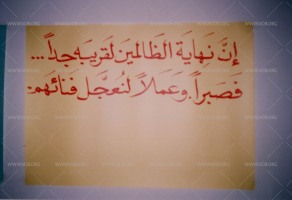 إنَّ نهايَة الظالمين لقريبَه جداً...
فَصَبراً وعَملاً لنُعجِّل فَنائهم.